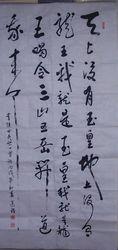 天上没有玉皇地上没有
龍王我就是玉皇我就是龍
王喝令三山五岳開道
我来了